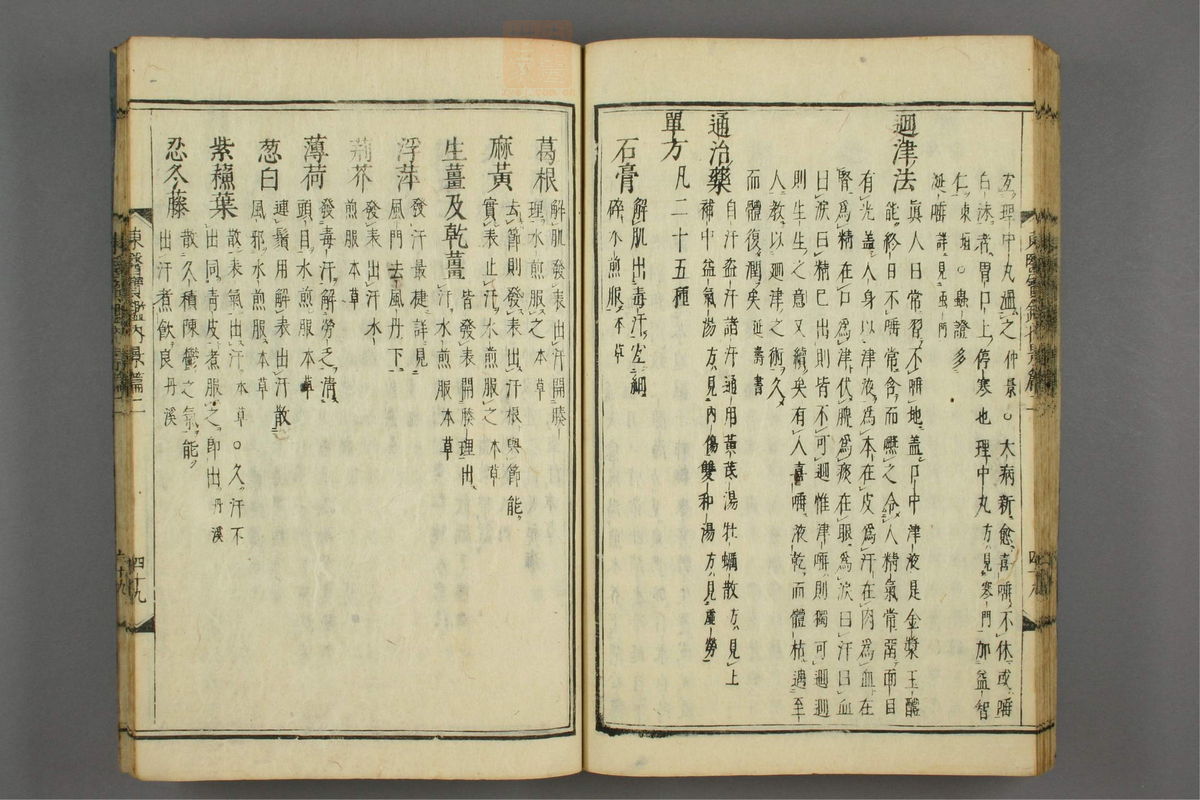 方理中丸溫之仲景○大病新愈喜唾不休或唾
白沫者胃口上停寒也理中丸方見寒門加益智
仁東垣○蟲證多
涎唾詳見蟲門
廻津法
眞人曰常習不唾地盖口中津液是金漿玉醴
能終日不唾常含而嚥之令人精氣常留面目
有光盖人身以津液爲本在皮爲汗在肉爲血在
腎爲精在口爲津伏脾爲痰在眼爲淚曰汗曰血
曰淚曰精已出則皆不可廻惟津唾則獨可廻廻
則生生之意又續矣有人喜唾液乾而體枯遇至
人教以廻津之術久
而體復潤矣延壽書
通治藥
自汗盜汗諸汗通用黃芪湯牡蠣散方見上
補中益氣湯方見內傷雙和湯方見虛勞
單方凡二十五種
石膏
解肌出毒汗宏細
碎水煎服本草
葛根
解肌發表出汗開腠
理水煎服之本草
麻黃
去節則發表出汗根與節能
實表止汗水煎服之本草
生薑及乾薑
皆發表開腠理出
汗水煎服本草
浮萍
發汗最捷詳見
風門去風丹下
荊芥
發表出汗水
煎服本草
薄荷
發毒汗解勞乏淸
頭目水煎服本草
葱白
連鬚用解表出汗散
風邪水煎服本草
紫蘓葉
散表氣出汗水煎本草○久汗不
出同靑皮煮服之卽出丹溪
忍冬藤
散久積陳鬱之氣能
出汗煮飮良丹溪
東醫寶鑑內景篇二
四十九